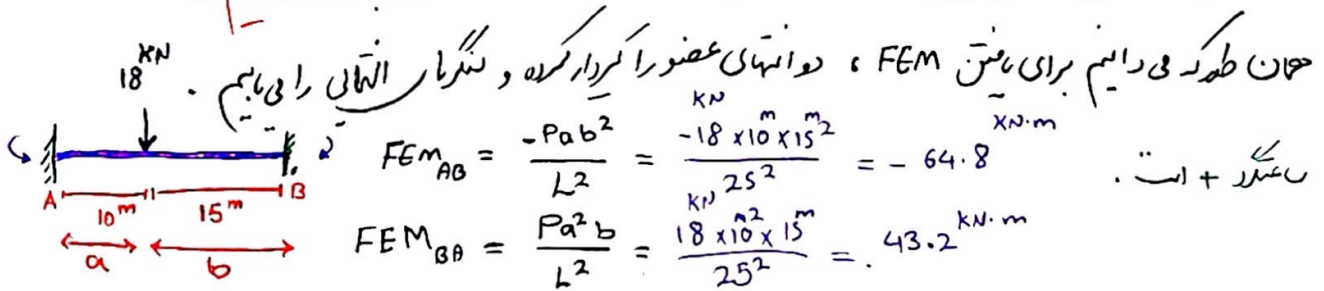 همان طور که می دانیم برای یافتن FEM ، دو انتهای عضو را گیردار کرده و لنگرهای انتهایی را می یابیم .
18 KN
A B
10 m 15 m
a b
FEM_AB = -Pab²/L² = -18 KN ×10 m ×15 m ²/25² = - 64.8 KN.m
ساعتگرد + است .
FEM_BA = Pa²b/L² = 18 KN ×10 m ² × 15 m/25² = 43.2 KN.m